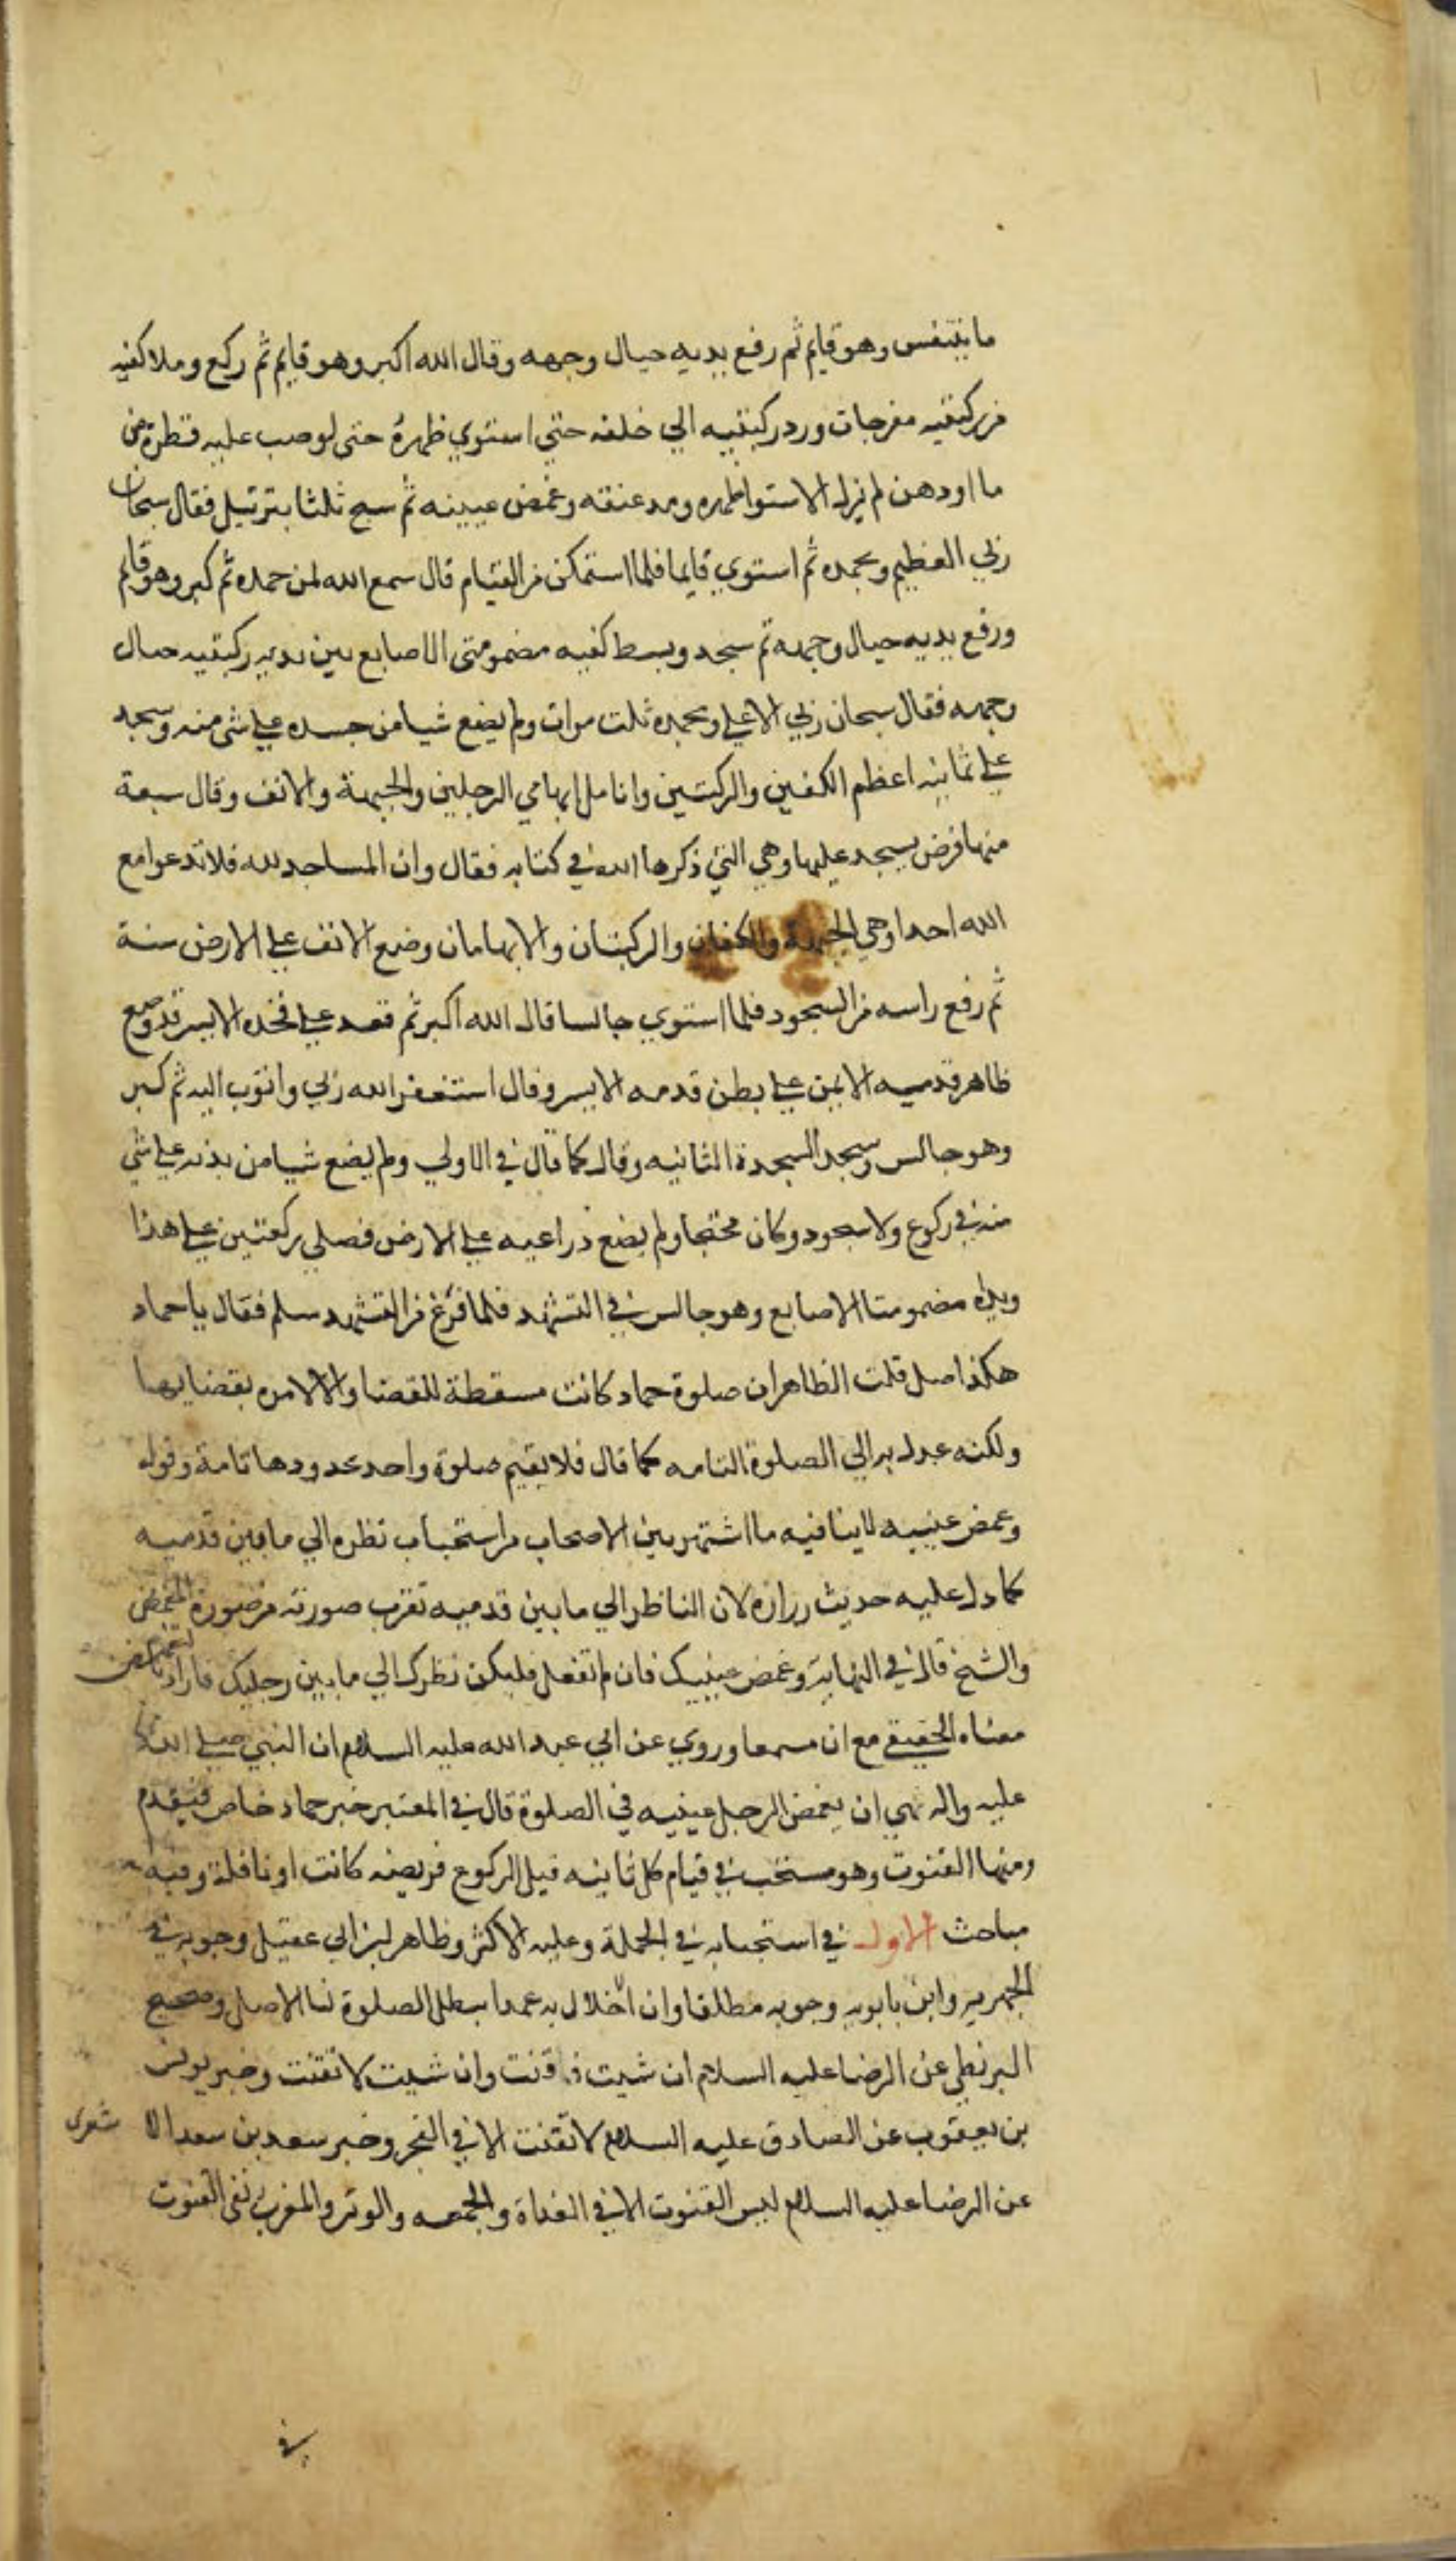 ما يتنفس وهو قايم ثم رفع يديه حيال وجهه وقال الله اكبر وهو قايم ثم ركع وملا كفيه
من ركبتيه مفرجات ورد ركبتيه الي خلفه حتي استوي ظهره حتى لو صب عليه قطرة من
ما او دهن لم يزل الاستوا ظهره ومد عنقه وغمض عينيه ثم سبح ثلثا بترتيل فقال سبحان
ربي العظيم وبحمده ثم استوي قايما فلما استمكن من القيام قال سمع الله لمن حمده ثم كبر وهو قايم
ورفع يديه حيال وجهه ثم سجد وبسط كفيه مضمومتي الاصابع بين يدي ركبتيه حيال
وجهه فقال سبحان ربي الاعلي وبحمده ثلث مرات ولم يضع شيا من جسده علي شي منه وسجد
علي ثمانيه اعظم الكفين والركبتين وانامل ابهامي الرجلين والجبهة والانف وقال سبعة
منها فرض يسجد عليها وهي التي ذكرها الله في كتابه فقال وان المساجد لله فلا تدعوا مع
الله احدا وهي الجبهة والكفان والركبتان والابهامان وضع الانف علي الارض سنة
ثم رفع راسه من السجود فلما استوي جالسا قال الله اكبر ثم قعد علي فخذه الايسر قد وضع
ظاهر قدميه الايمن علي بطن قدمه الايسر وقال استغفر الله ربي واتوب اليه ثم كبر
وهو جالس وسجد السجدة الثانيه وقال كما قال في الاولي ولم يضع شيا من بدنه علي شي
منه في ركوع ولا سجود وكان مجنحا ولم يضع ذراعيه علي الارض فصلي ركعتين علي هذا
ويداه مضمومتا الاصابع وهو جالس في التشهد فلما فرغ من التشهد سلم فقال يا حماد
هكذا صل قلت الظاهر ان صلوة حماد كانت مسقطة للقضا والا لامره بقضايها
ولكنه عدل به الي الصلوة التامه كما قال فلا يقيم صلوة واحد بحدودها تامة وقوله
وغمض عينيه لا ينافيه ما اشتهر بين الاصحاب من استحباب نظره الي ما بين قدميه
كما دل عليه حديث زرارة لان الناظر الي ما بين قدميه تقرب صورته من صورة المغمض
والشيخ قال في النهاية وغمض عينيك فان لم تفعل فليكن نظرك الي ما بين رجليك فاراد بالتغميض
معناه الحقيقي مع ان مسمعا وروي عن ابي عبد الله عليه السلام ان النبي صلي الله
عليه واله نهي ان يغمض الرجل عينيه في الصلوة قال في المعتبر خبر حماد خاص فيقدم
ومنها القنوت وهو مستحب في قيام كل ثانيه قبل الركوع فريضه كانت او نافلة وفيه
مباحث الاول في استحبابه في الجملة وعليه الاكثر وظاهر ابن ابي عقيل وجوبه في
الجهريه وابن بابويه وجوبه مطلقا وان اخلال به عمدا يبطل الصلوة لنا الاصل وصحيح
البزنطي عن الرضا عليه السلام ان شيت فاقنت وان شيت لا تقنت وخبر يونس
بن يعقوب عن الصادق عليه السلام لا تقنت الا في الفجر وخبر سعد بن سعد الا شعري
عن الرضا عليه السلام ليس القنوت الا في الغداة والجمعه والوتر والمغرب نفي القنوت
في